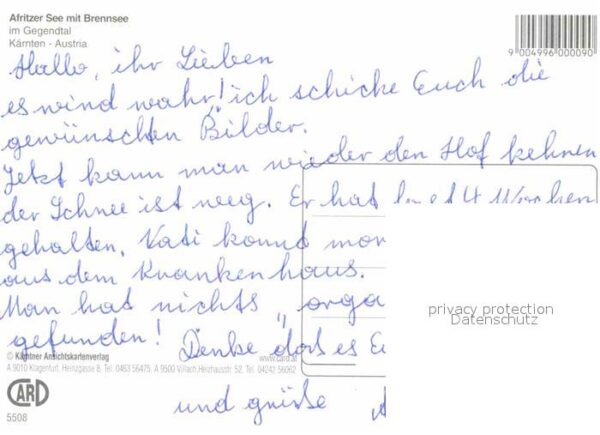 Afritzer See mit Brennsee
im Gegendtal
Kärnten - Austria
9 004996 000090
Hallo, ihr Lieben
es wird wahr! ich schicke Euch die
gewünschten Bilder.
Jetzt kann man wieder den Hof kehren
der Schnee ist weg. Er hat
gehalten. Vati kommt mor
aus dem Krankenhaus.
Man hat nichts „orga
gefunden!
Denke das es
und grüße
privacy protection
Datenschutz
© Kärntner Ansichtskartenverlag
www.card.at
A 9010 Klagenfurt, Heinzgasse 8, Tel. 0463 56475, A 9500 Villach, Heizhausstr. 52, Tel. 04242 56062
CARD
5508